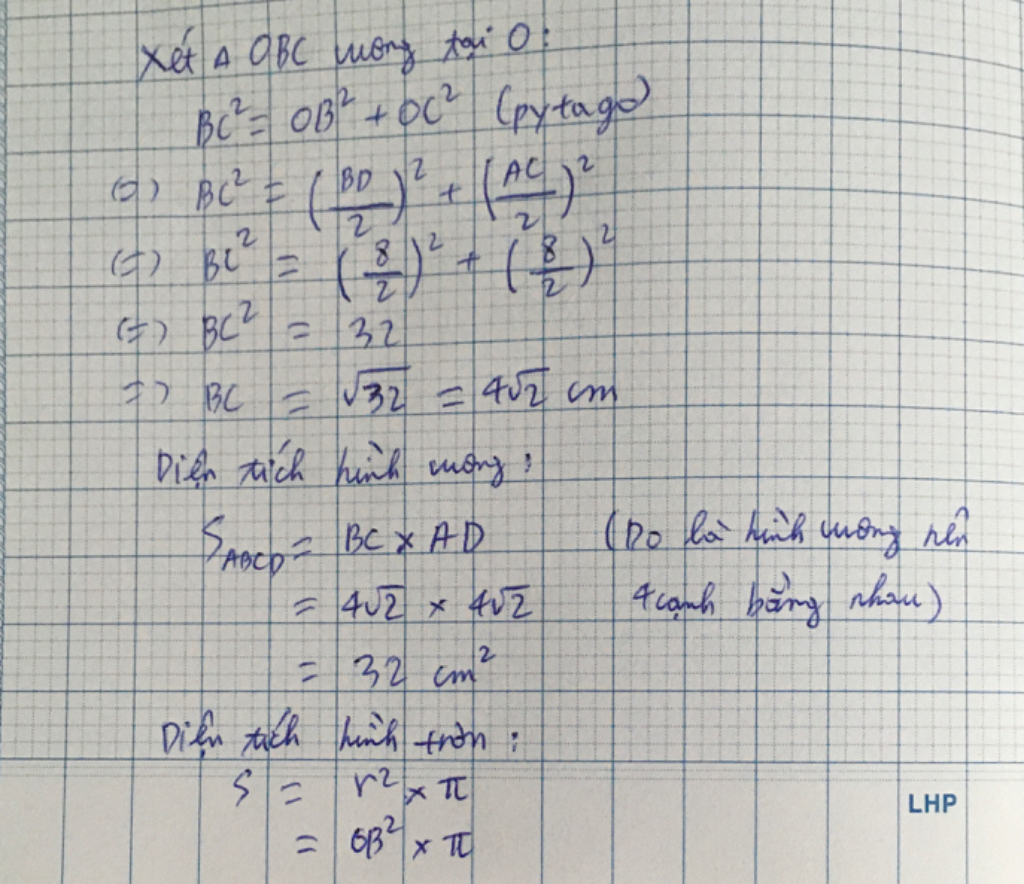 Xét Δ OBC vuông tại O:
BC² = OB² + OC² (pytago)
(=) BC² = (BD/2)² + (AC/2)²
(=) BC² = (8/2)² + (8/2)²
(=) BC² = 32
=) BC = √32 = 4√2 cm
Diện tích hình vuông:
S_ABCD = BC × AD (Do là hình vuông nên
= 4√2 × 4√2 4 cạnh bằng nhau)
= 32 cm²
Diện tích hình tròn:
S = r² × π
= OB² × π
LHP